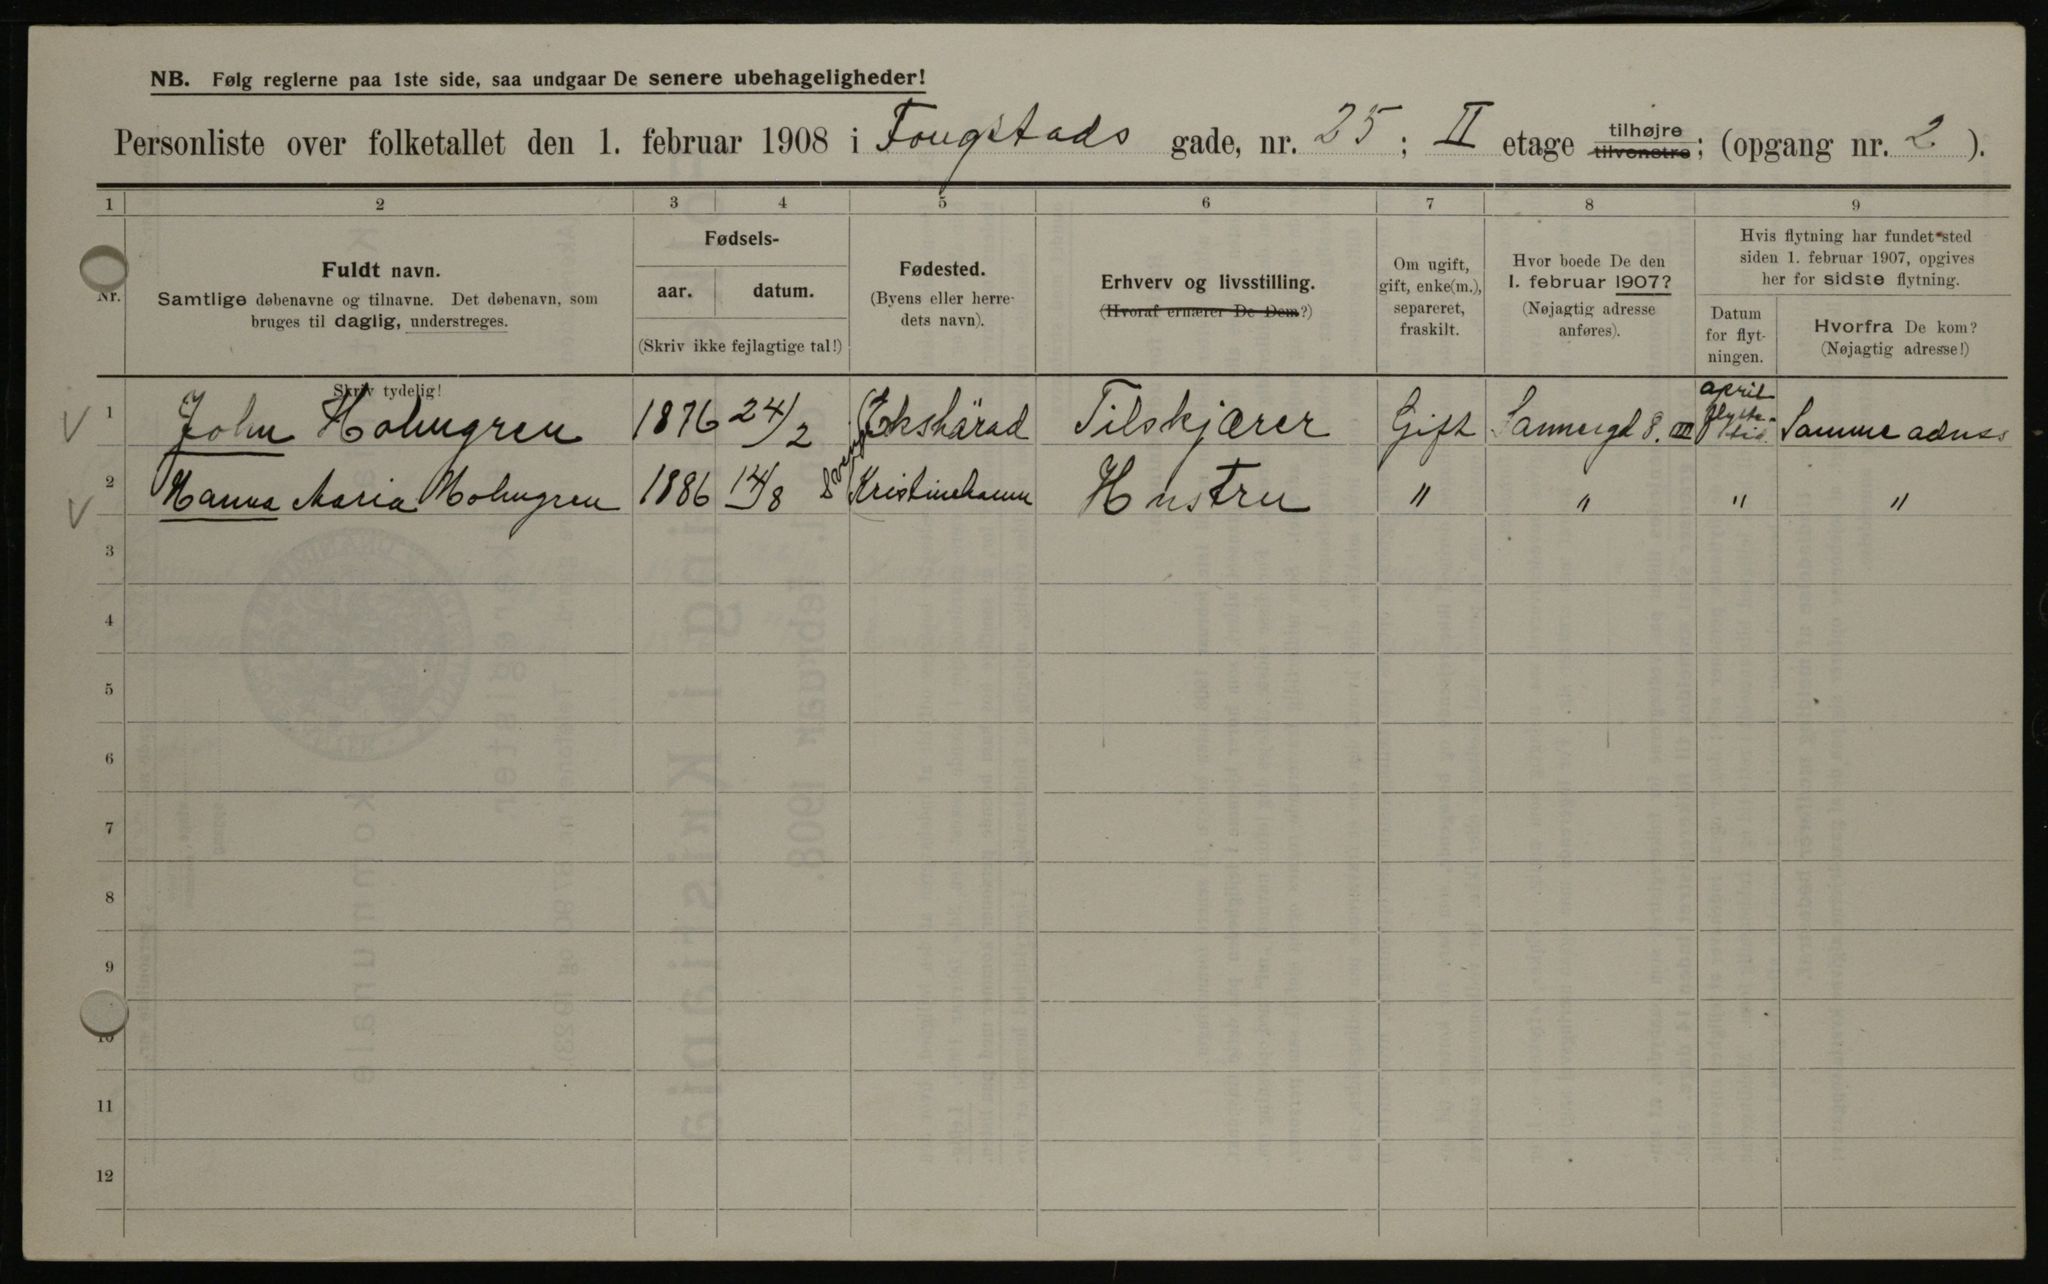 NB. Følg reglerne paa 1ste side, saa undgaar De senere ubehageligheder!
Personliste over folketallet den 1. februar 1908 i Fougstads gade, nr. 25; II etage tilhøjre tilvenstre; (opgang nr. 2).
1 2 3 4 5 6 7 8 9
Nr.
Fuldt navn.
Samtlige døbenavne og tilnavne. Det døbenavn, som
bruges til daglig, understreges.
Skriv tydelig!
Fødsels-
aar. datum.
(Skriv ikke fejlagtige tal!)
Fødested.
(Byens eller herre-
dets navn).
Erhverv og livsstilling.
(Hvoraf ernærer De Dem?)
Om ugift,
gift, enke(m.),
separeret,
fraskilt.
Hvor boede De den
1. februar 1907?
(Nøjagtig adresse
anføres).
Hvis flytning har fundet sted
siden 1. februar 1907, opgives
her for sidste flytning.
Datum
for flyt-
ningen.
Hvorfra De kom?
(Nøjagtig adresse!)
1 John Holmgren 1876 24/2 Ekshärad Tilskjærer Gift Sannergd 8. III april flytte-tid Samme adress
2 Hanna Maria Holmgren 1886 14/8 Sverige Kristinehamn Hustru " " " "
3
4
5
6
7
8
9
10
11
12